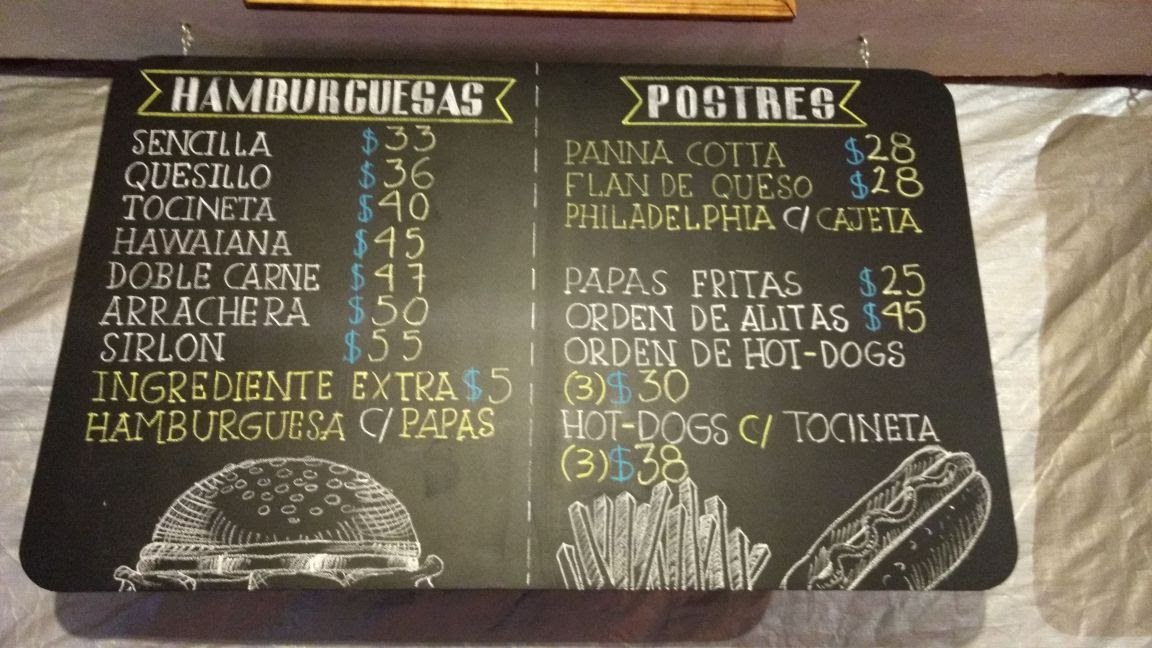 HAMBURGUESAS
SENCILLA $33
QUESILLO $36
TOCINETA $40
HAWAIANA $45
DOBLE CARNE $47
ARRACHERA $50
SIRLON $55
INGREDIENTE EXTRA $5
HAMBURGUESA C/ PAPAS
POSTRES
PANNA COTTA $28
FLAN DE QUESO $28
PHILADELPHIA C/ CAJETA
PAPAS FRITAS $25
ORDEN DE ALITAS $45
ORDEN DE HOT-DOGS
(3) $30
HOT-DOGS C/ TOCINETA
(3) $38